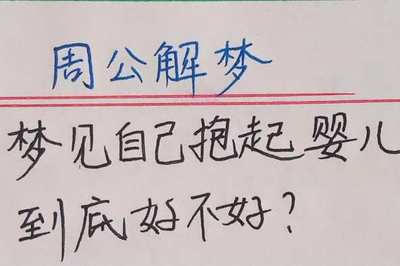 周公解梦
梦见自己抱起婴儿
到底好不好?